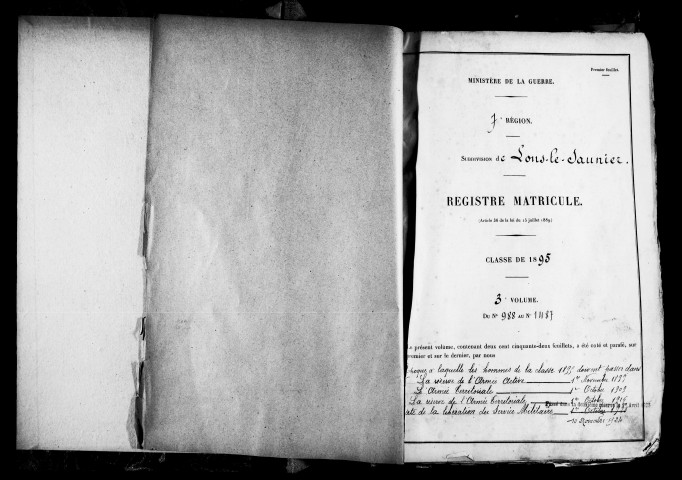 Premier feuillet.
MINISTÈRE DE LA GUERRE.
7e RÉGION.
SUBDIVISION de Lons-le-Saunier.
REGISTRE MATRICULE.
(Article 36 de la loi du 15 juillet 1889)
CLASSE DE 1895
3e VOLUME.
DU No 988 AU No 1487
Le présent volume, contenant deux cent cinquante-deux feuillets, a été coté et parafé, sur
premier et sur le dernier, par nous
époque à laquelle les hommes de la classe 1895 doivent passer dans
La réserve de l'Armée Active 1er Novembre 1899
L'Armée Territoriale 1er Octobre 1909
La réserve de l'Armée Territoriale 1er Octobre 1916
date de la libération du Service Militaire 1er Octobre
10 Novembre 1924